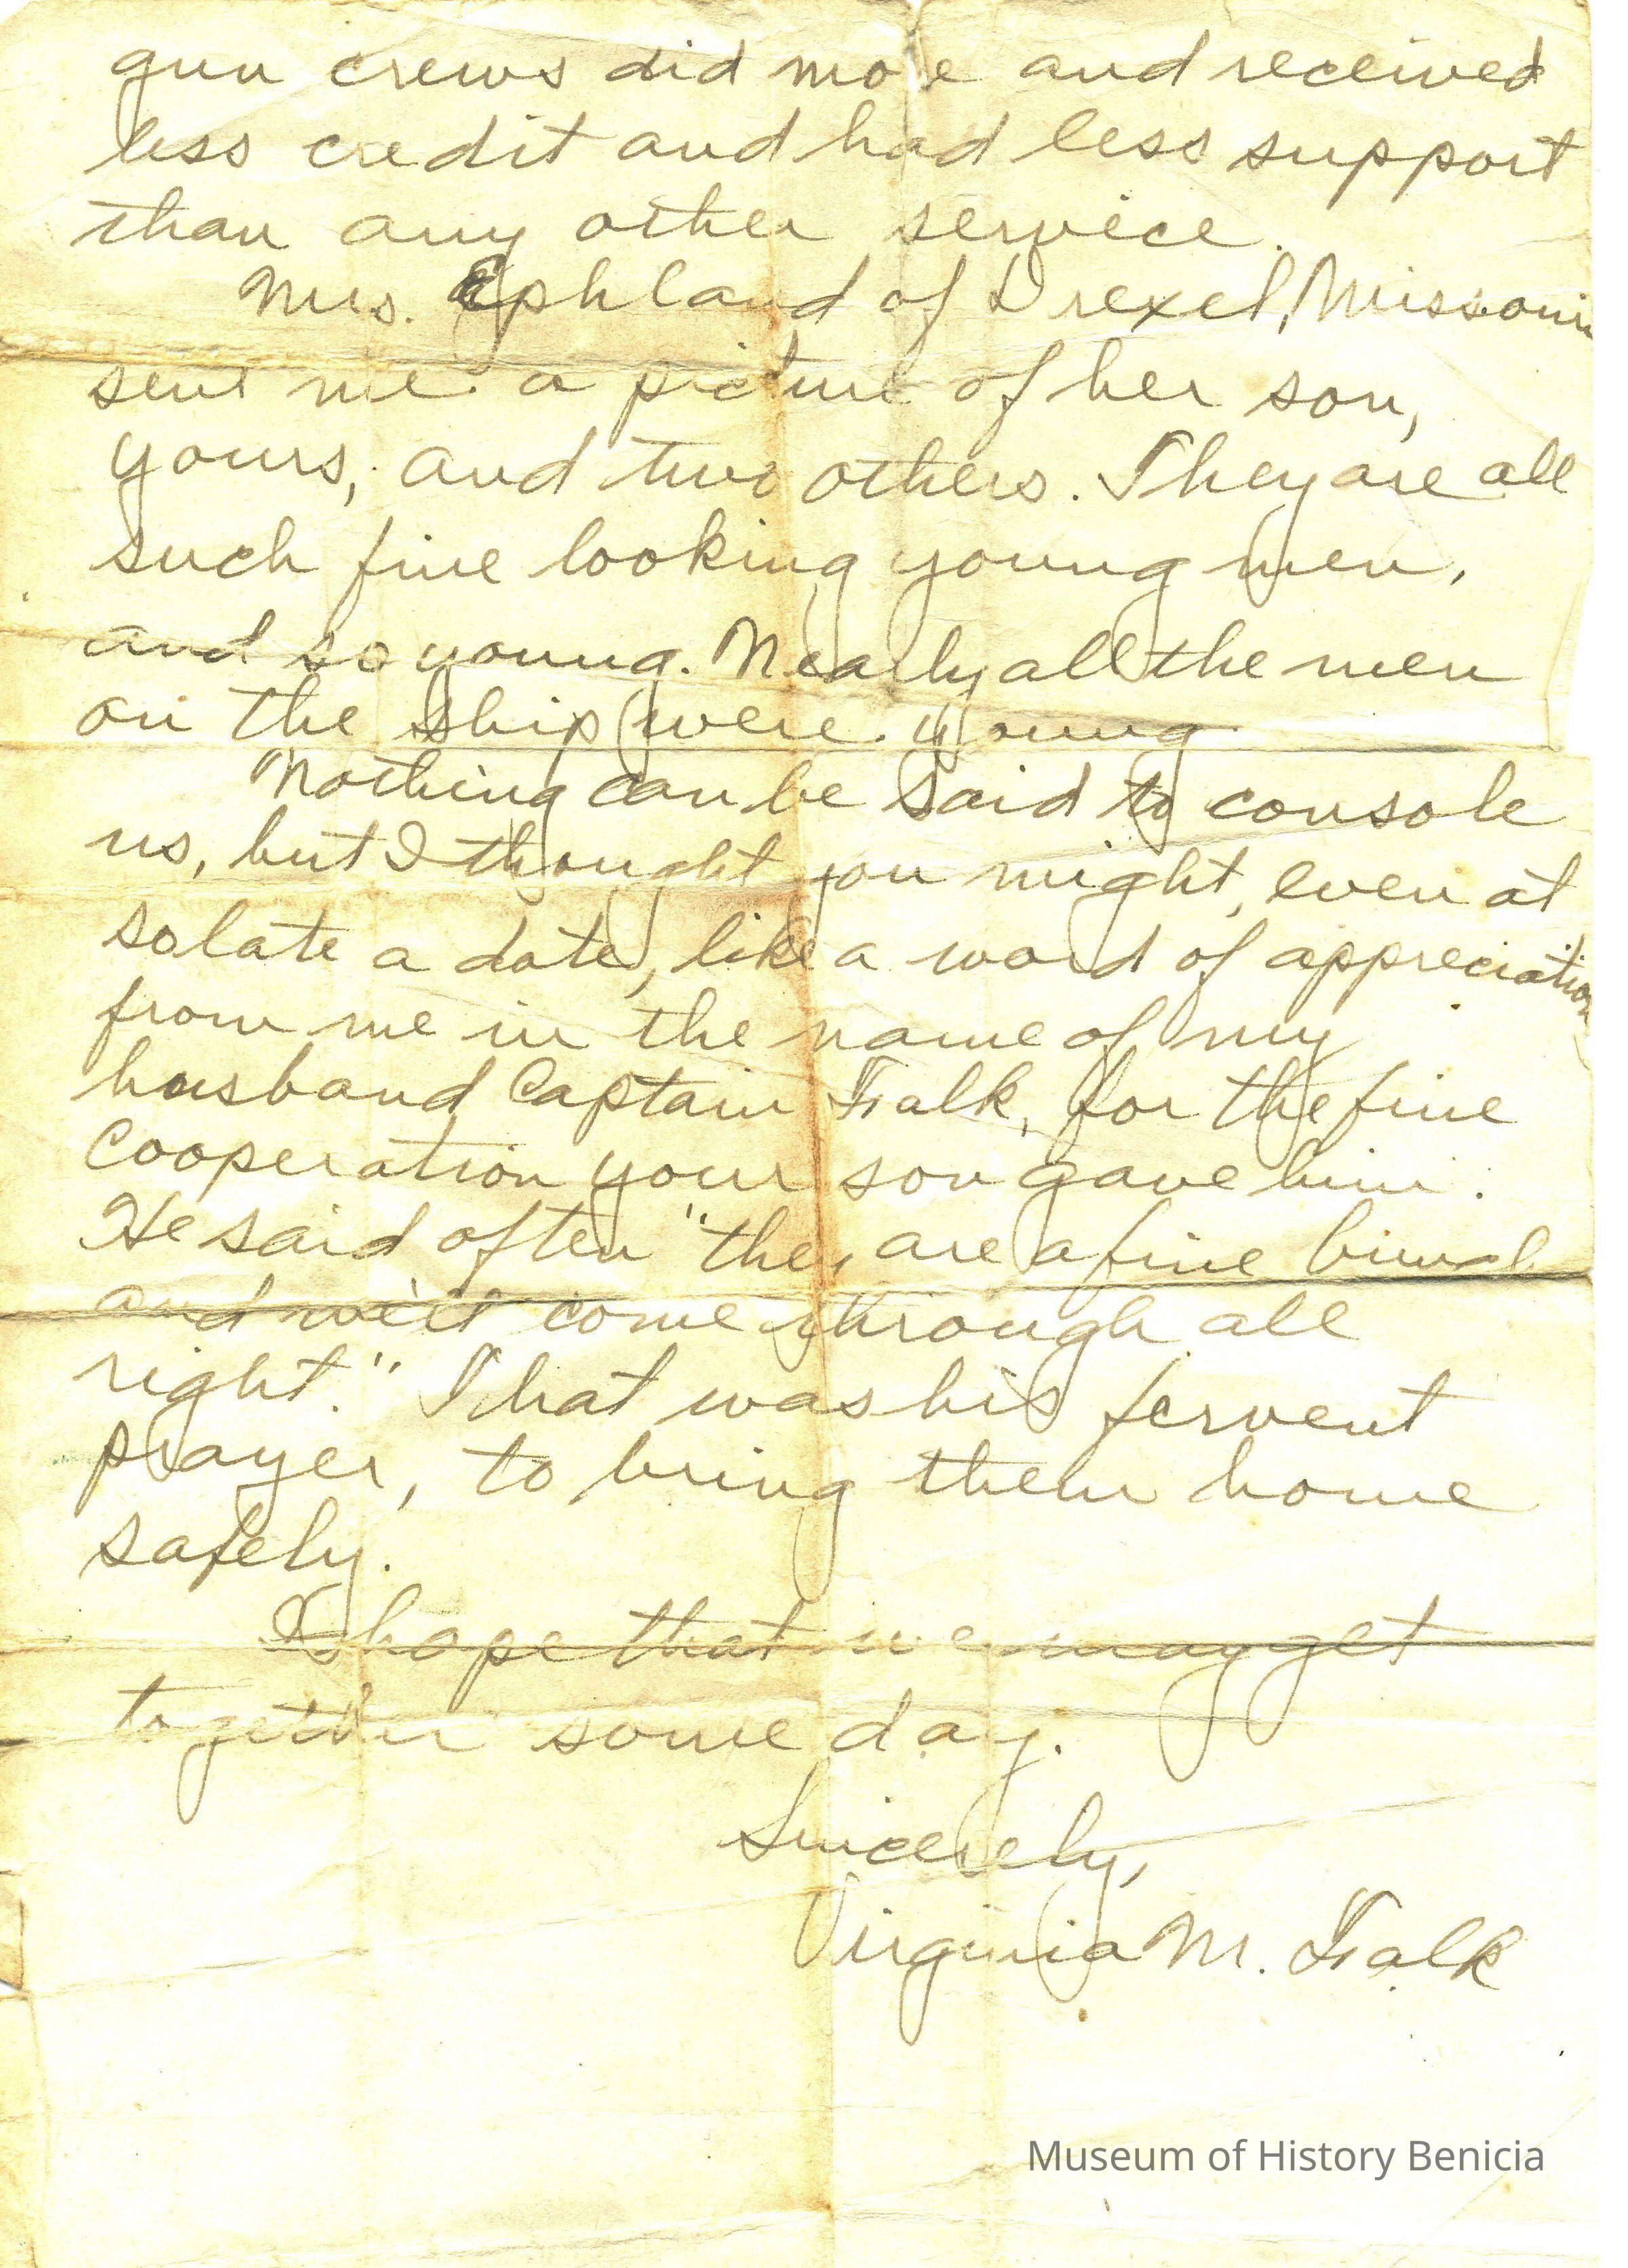 gun crews did more and received
less credit and had less support
than any other service.
Mrs. Ephland of Drexel, Missouri
sent me a picture of her son,
yours, and two others. They are all
such fine looking young men,
and so young. Nearly all the men
on the ship were young
Nothing can be said to console
us, but I thought you might, even at
so late a date, like a word of appreciation
from me in the name of my
husband Captain Falk, for the fine
cooperation your son gave him.
He said often "they are a fine bunch
and we'll come through all
right." That was his fervent
prayer, to bring them home
safely.
I hope that we may get
together some day.
Sincerely,
Virginia M. Falk
Museum of History Benicia